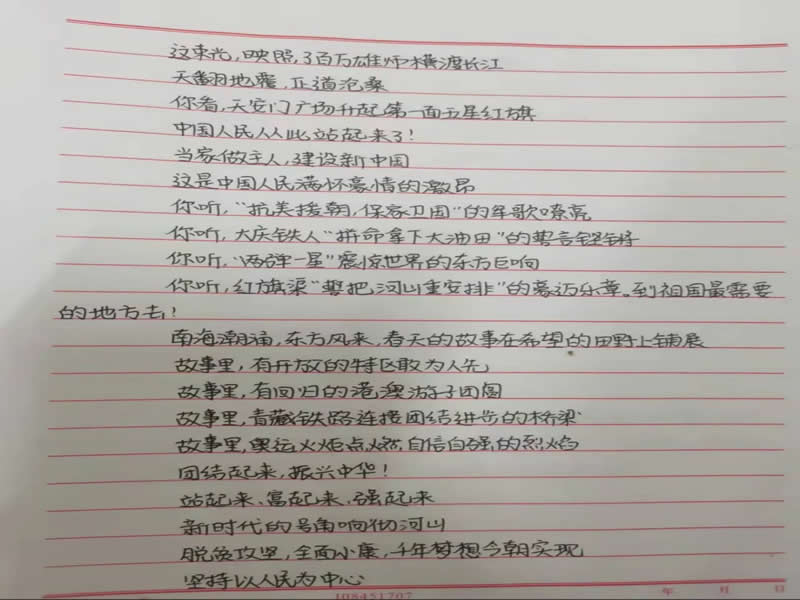 这束光,映照了百万雄师横渡长江
天翻地覆,正道沧桑
你看,天安门广场升起第一面五星红旗
中国人民从此站起来了!
当家做主人,建设新中国
这是中国人民满怀豪情的激昂
你听,“抗美援朝,保家卫国”的军歌嘹亮
你听,大庆铁人“拼命拿下大油田”的誓言铿锵
你听,“两弹一星”震惊世界的东方巨响
你听,红旗渠“誓把河山重安排”的豪迈乐章。到祖国最需要
的地方去!
南海潮涌,东方风来,春天的故事在希望的田野上铺展
故事里,有开放的特区敢为人先
故事里,有回归的港澳游子团圆
故事里,青藏铁路连接团结进步的桥梁
故事里,奥运火炬点燃自信自强的烈焰
团结起来,振兴中华!
站起来、富起来、强起来
新时代的号角响彻河山
脱贫攻坚,全面小康,千年梦想今朝实现
坚持以人民为中心
108451707 年 月 日